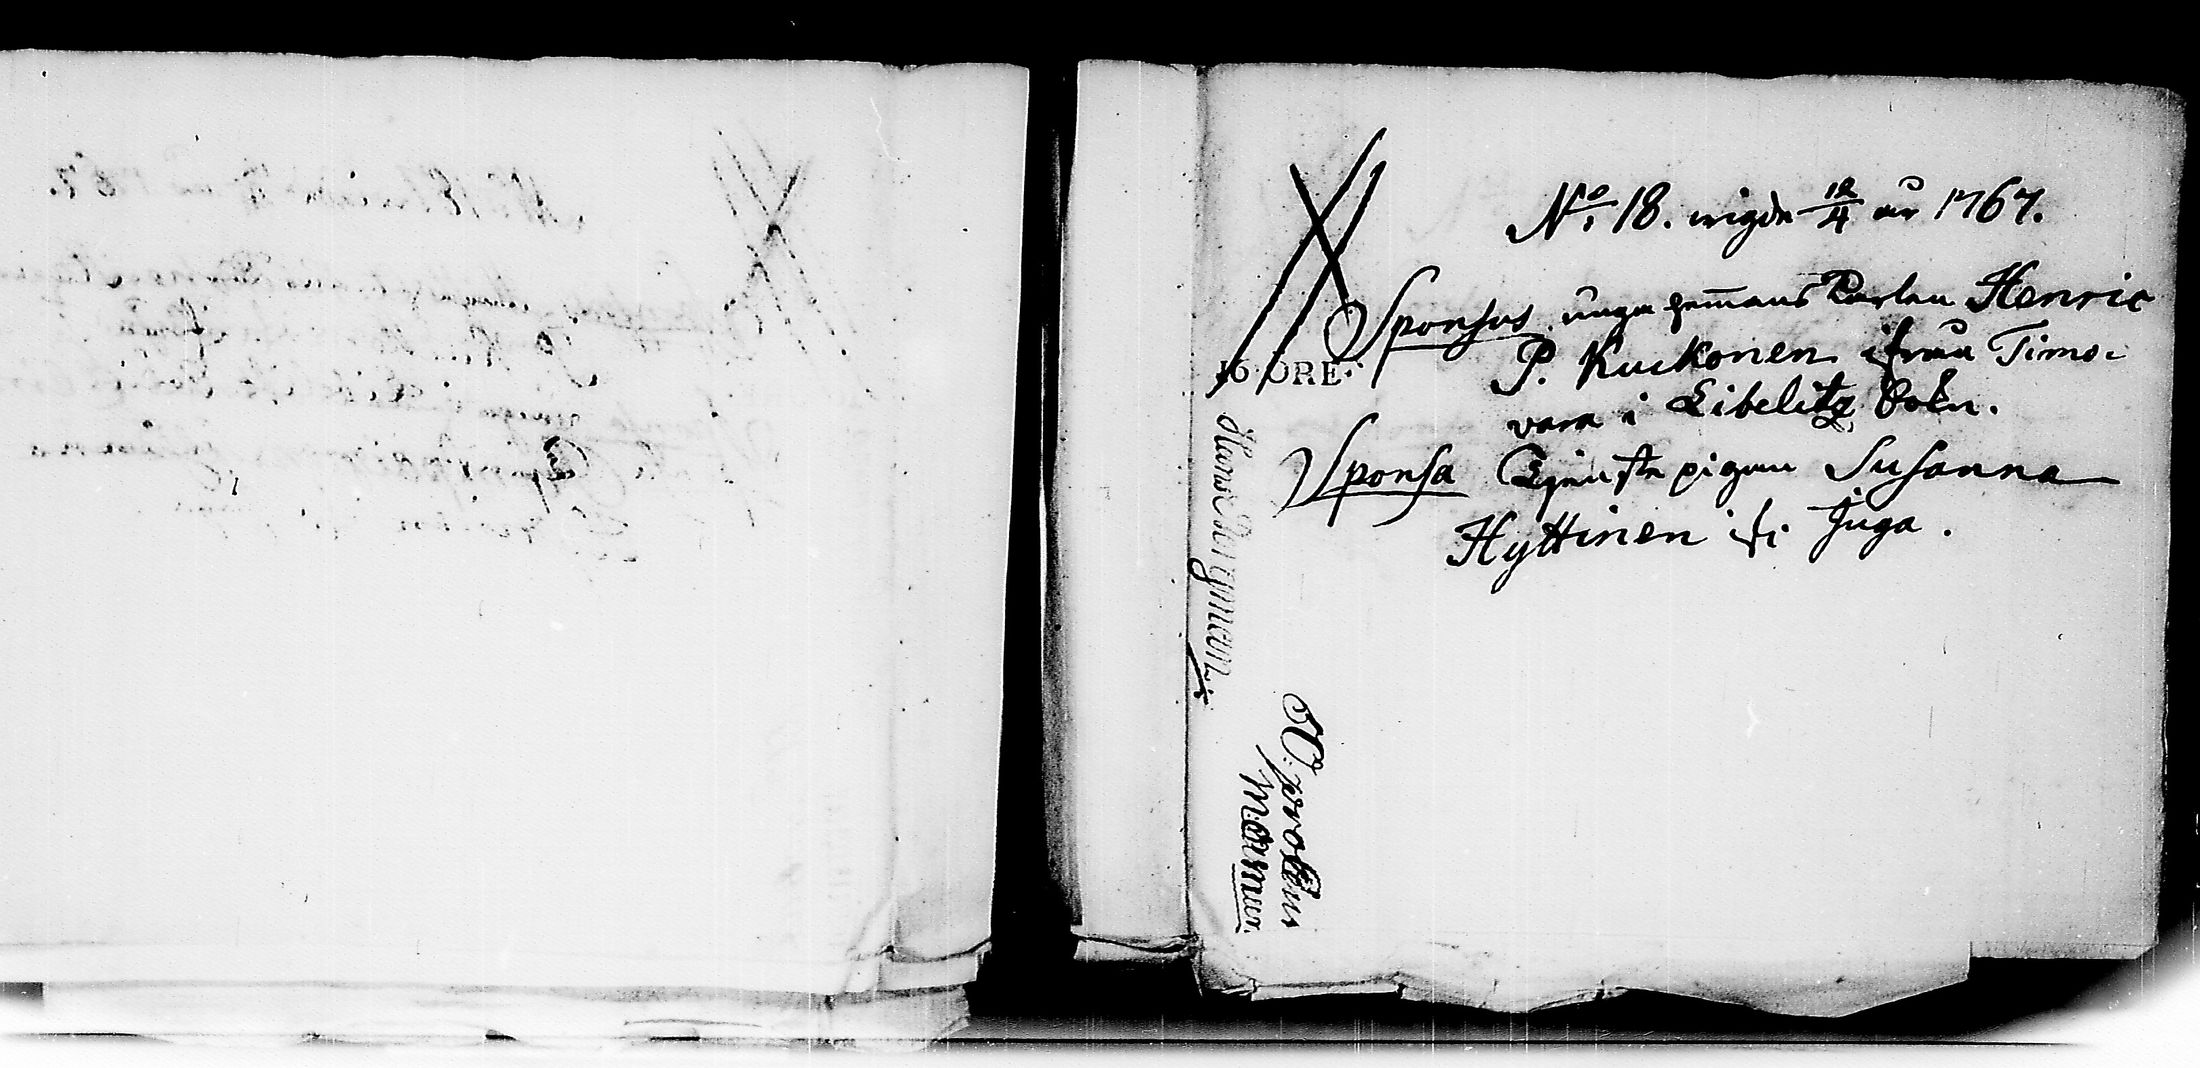 No 18. wigde 12/4 år 1767.
Sponsus unga hemans Karlen Henric
P. Kuckonen ifrån Timo-
vara i Libelitz Sokn.
16 ÖRE.
Sponsa Tjenste pigan Susanna
Hyttinen ifr Juga.
Hans Bergman